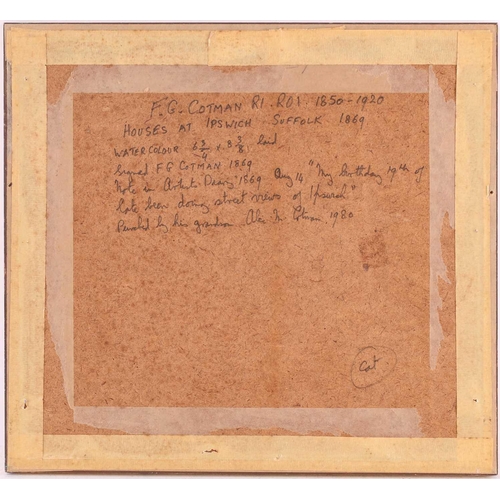 F.G. COTMAN RI. ROI. 1850-1920
HOUSES AT IPSWICH SUFFOLK 1869
WATERCOLOUR 6 3/4 x 8 3/8
Signed F G COTMAN 1869
Note in Artist Diary 1869 Aug 14 "My birthday 19th of
late been doing street views of Ipswich"
by his grandson Alec M. Cotman 1980
Cat